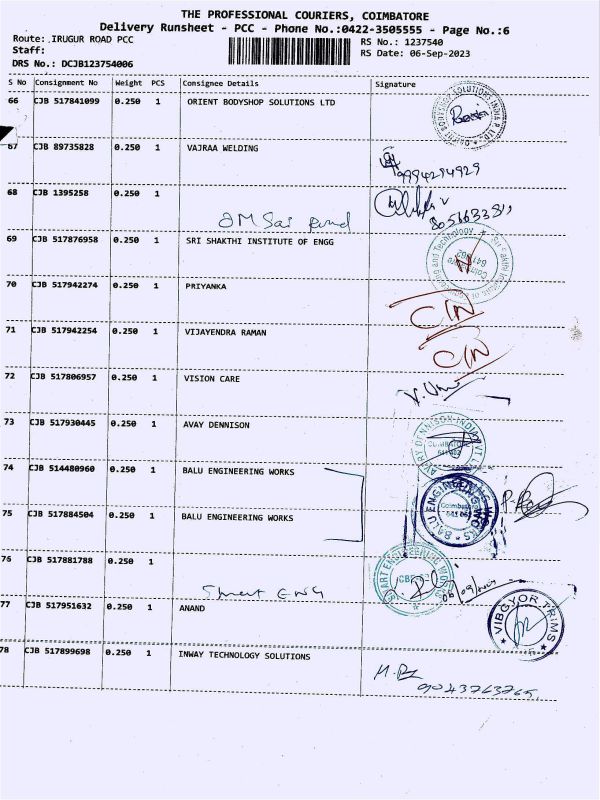 THE PROFESSIONAL COURIERS, COIMBATORE
Delivery Runsheet - PCC - Phone No.:0422-3505555 - Page No.:6
Route: IRUGUR ROAD PCC RS No.: 1237540
Staff: RS Date: 06-Sep-2023
DRS No.: DCJB123754006
S No Consignment No Weight PCS Consignee Details Signature
66 CJB 517841099 0.250 1 ORIENT BODYSHOP SOLUTIONS LTD
67 CJB 89735828 0.250 1 VAJRAA WELDING
9994294929
68 CJB 1395258 0.250 1
69 CJB 517876958 0.250 1 SRI SHAKTHI INSTITUTE OF ENGG
70 CJB 517942274 0.250 1 PRIYANKA
C/N
71 CJB 517942254 0.250 1 VIJAYENDRA RAMAN
C/N
72 CJB 517806957 0.250 1 VISION CARE
73 CJB 517930445 0.250 1 AVAY DENNISON
74 CJB 514480960 0.250 1 BALU ENGINEERING WORKS
75 CJB 517884504 0.250 1 BALU ENGINEERING WORKS
BALU ENGINEERING WORKS
76 CJB 517881788 0.250 1
Smart ENG
77 CJB 517951632 0.250 1 ANAND
VIBGYOR TRIMS
78 CJB 517899698 0.250 1 INWAY TECHNOLOGY SOLUTIONS
9043763765